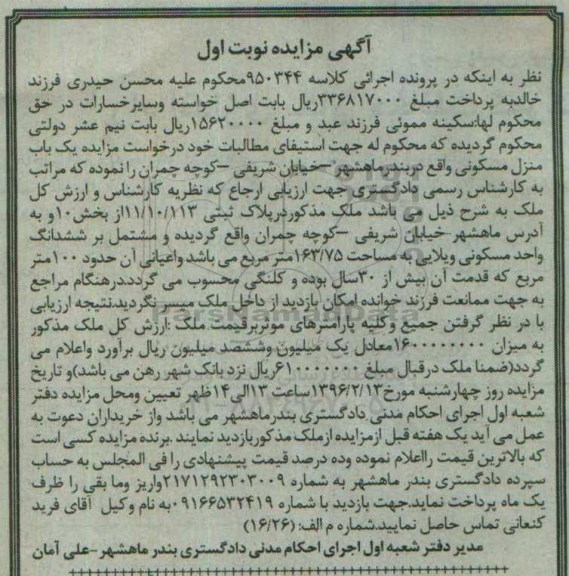 آگهی مزایده نوبت اول
نظر به اینکه در پرونده اجرائی کلاسه ۹۵۰۳۴۴محکوم علیه محسن حیدری فرزند
خالدبه پرداخت مبلغ ۳۳۶۸۱۷۰۰۰ریال بابت اصل خواسته وسایرخسارات در حق
محکوم لها:سکینه موئی فرزند عبد و مبلغ ۱۵۶۲۰۰۰۰ریال بابت نیم عشر دولتی
محکوم گردیده که محکوم له جهت استیفای مطالبات خود درخواست مزایده یک باب
منزل مسکونی واقع دربندرماهشهر –خیابان شریفی –کوچه چمران را نموده که مراتب
به کارشناس رسمی دادگستری جهت ارزیابی ارجاع که نظریه کارشناس و ارزش کل
ملک به شرح ذیل می باشد ملک مذکوردرپلاک ثبتی ۱۱/۱۰/۱۱۳از بخش۱۰و به
آدرس ماهشهر خیابان شریفی –کوچه چمران واقع گردیده و مشتمل بر ششدانگ
واحد مسکونی ویلایی به مساحت ۱۶۳/۷۵متر مربع می باشد واعیانی آن حدود ۱۰۰متر
مربع که قدمت آن بیش از ۳۰سال بوده و کلنگی محسوب می گردد.درهنگام مراجع
به جهت ممانعت فرزند خوانده امکان بازدید از داخل ملک میسر نگردید.نتیجه ارزیابی
با در نظر گرفتن جمیع وکلیه پارامترهای موثربرقیمت ملک :ارزش کل ملک مذکور
به میزان ۱۶۰۰۰۰۰۰۰۰معادل یک میلیون وششصد میلیون ریال برآورد واعلام می
گردد(ضمنا ملک درقبال مبلغ ۶۱۰۰۰۰۰۰۰ریال نزد بانک شهر رهن می باشد)و تاریخ
مزایده روز چهارشنبه مورخ۱۳۹۶/۲/۱۳ساعت ۱۳الی۱۴ظهر تعیین ومحل مزایده دفتر
شعبه اول اجرای احکام مدنی دادگستری بندرماهشهر می باشد واز خریداران دعوت به
عمل می آید یک هفته قبل ازمزایده ازملک مذکوربازدید نمایند .برنده مزایده کسی است
که بالاترین قیمت رااعلام نموده وده درصد قیمت پیشنهادی را فی المجلس به حساب
سپرده دادگستری بندر ماهشهر به شماره ۲۱۷۱۲۹۲۳۰۳۰۰۹واریز وما بقی را ظرف
یک ماه پرداخت نماید.جهت بازدید با شماره ۰۹۱۶۶۵۳۲۴۱۹به نام وکیل آقای فرید
کنعانی تماس حاصل نمایید.شماره م الف: (۱۶/۲۶)
مدیر دفتر شعبه اول اجرای احکام مدنی دادگستری بندر ماهشهر –علی آمان
ParsNamadData